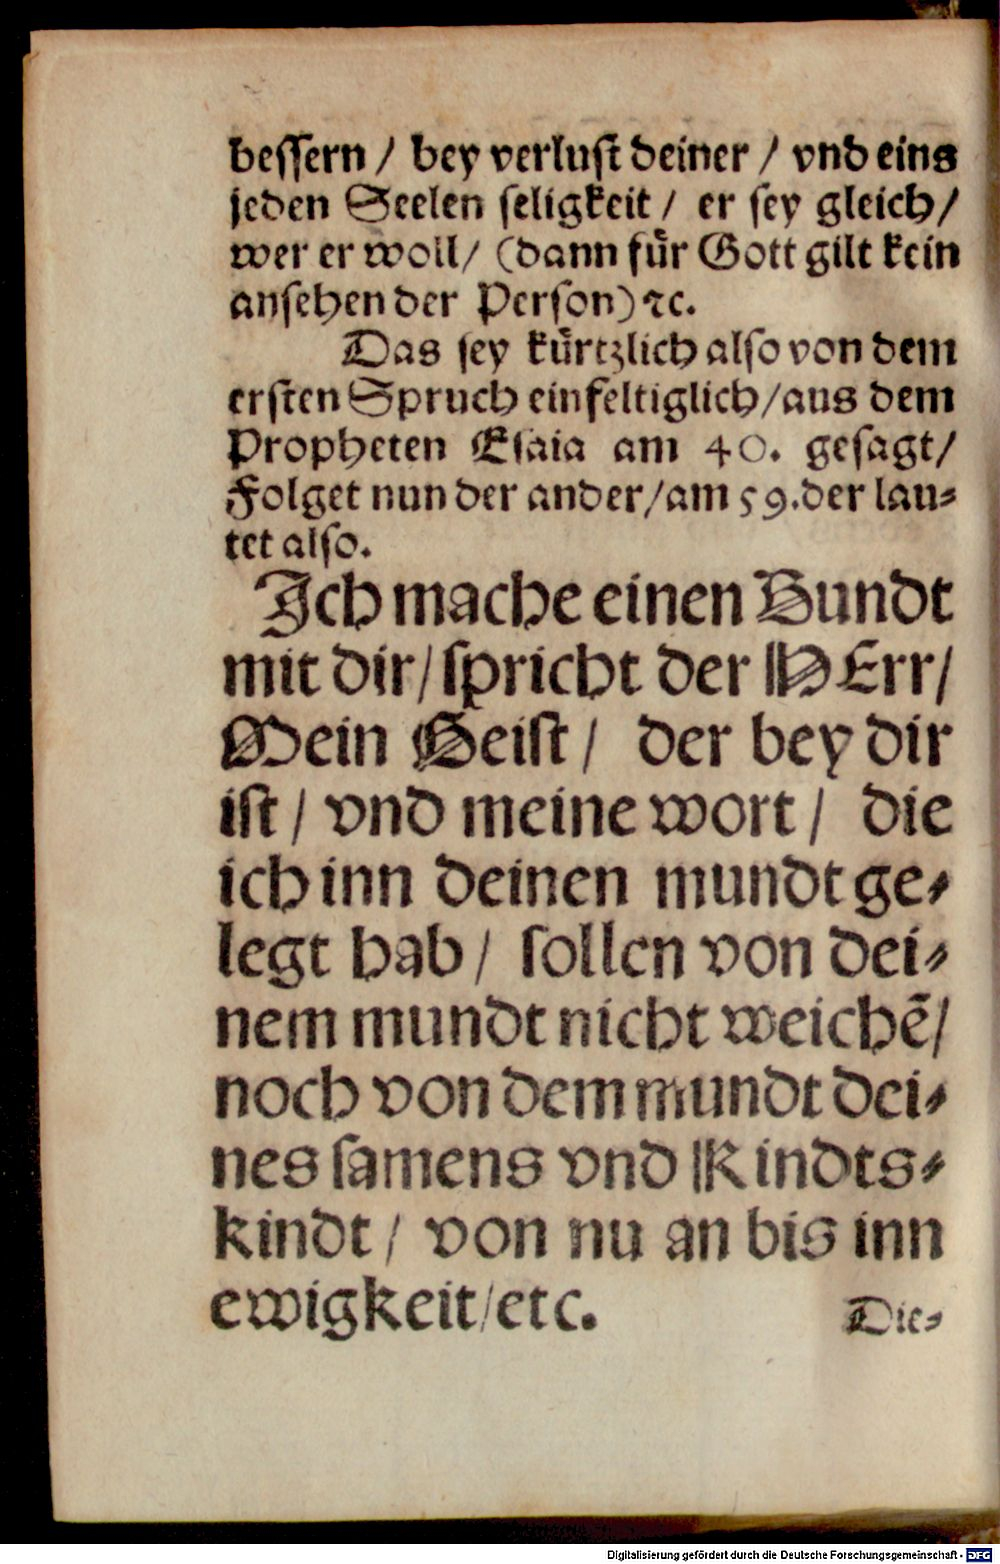 beſſern / bey verluſt deiner / vnd eins
jeden Seelen ſeligkeit / er ſey gleich /
wer er woll / (dann fuͤr Gott gilt kein
anſehen der Perſon) ꝛc.
Das ſey kuͤrtzlich alſo von dem
erſten Spruch einfeltiglich / aus dem
Propheten Eſaia am 40. geſagt /
Folget nun der ander / am 59. der lau⸗
tet alſo.
Ich mache einen Bundt
mit dir / ſpricht der HErr /
Mein Geiſt / der bey dir
iſt / vnd meine wort / die
ich inn deinen mundt ge⸗
legt hab / ſollen von dei⸗
nem mundt nicht weichē /
noch von dem mundt dei⸗
nes ſamens vnd Kindts⸗
kindt / von nu an bis inn
ewigkeit / etc.
Die⸗
Digitalisierung gefördert durch die Deutsche Forschungsgemeinschaft - DFG